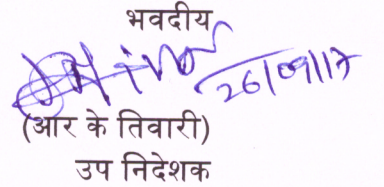 भवदीय
26/09/17
(आर के तिवारी)
उप निदेशक